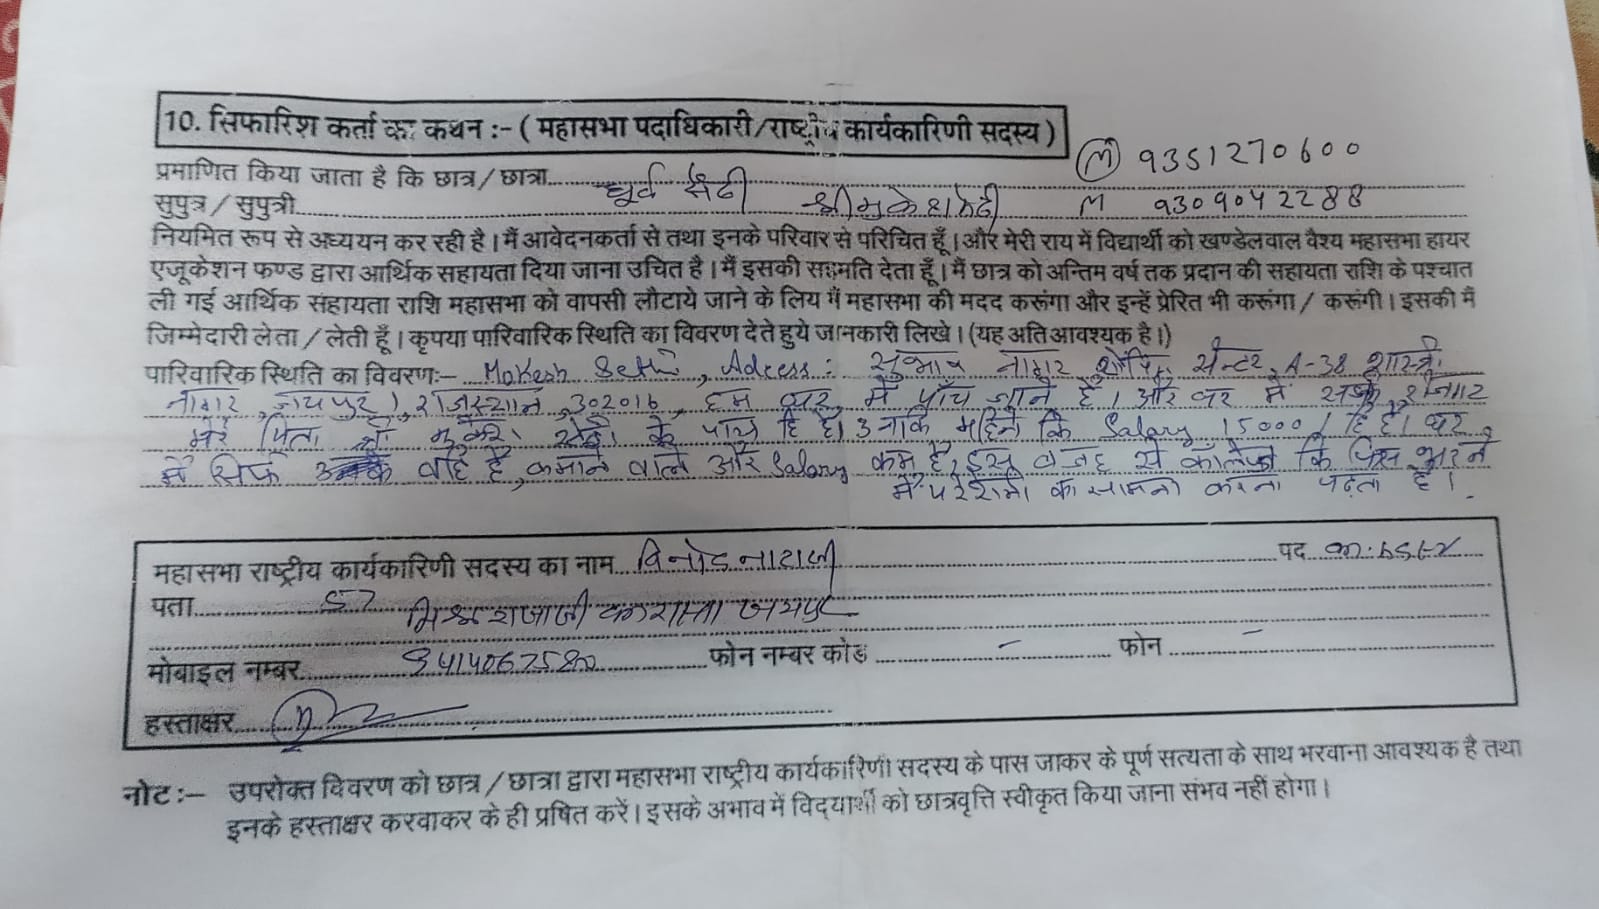 10. सिफारिश कर्ता का कथन :- ( महासभा पदाधिकारी/राष्ट्रीय कार्यकारिणी सदस्य )
(M) 9351270600
प्रमाणित किया जाता है कि छात्र/छात्रा धुर्व सेठी
सुपुत्र/सुपुत्री श्री मुकेश सेठी M 9309042288
नियमित रूप से अध्ययन कर रही है। मैं आवेदनकर्ता से तथा इनके परिवार से परिचित हूँ। और मेरी राय में विद्यार्थी को खण्डेलवाल वैश्य महासभा हायर
एजूकेशन फण्ड द्वारा आर्थिक सहायता दिया जाना उचित है। मैं इसकी सहमति देता हूँ। मैं छात्र को अन्तिम वर्ष तक प्रदान की सहायता राशि के पश्चात
ली गई आर्थिक संहायता राशि महासभा को वापसी लौटाये जाने के लिय मैं महासभा की मदद करूंगा और इन्हें प्रेरित भी करूंगा/ करूंगी। इसकी मैं
जिम्मेदारी लेता/लेती हूँ। कृपया पारिवारिक स्थिति का विवरण देते हुये जानकारी लिखे। (यह अति आवश्यक है।)
पारिवारिक स्थिति का विवरण:- Mokesh Sethi, Adress: सुभाष नागर शॉपिंग सेन्टर, A-38 शास्त्री
नागर, जयपुर, राजस्थान, 302016, हम घर में पाँच जाने है। और घर में
मेरे पिता श्री मुकेश सेठी के पास हि है। उनकि महिने कि Salary 15000/ हि है। घर
में सिर्फ वहि है, कमाने वाले और Salary कम है, इस वजह से कॉलेज कि फिस भरने
में परेशानी का सामना करना पढ़ता है।
महासभा राष्ट्रीय कार्यकारिणी सदस्य का नाम विनोद नाटाणी पद
पता 57 मिश्र राजाजी का रास्ता जयपुर
मोबाइल नम्बर 9414067580 फोन नम्बर कोड - फोन -
हस्ताक्षर
नोट :- उपरोक्त विवरण को छात्र/छात्रा द्वारा महासभा राष्ट्रीय कार्यकारिणी सदस्य के पास जाकर के पूर्ण सत्यता के साथ भरवाना आवश्यक है तथा
इनके हस्ताक्षर करवाकर के ही प्रषित करें। इसके अभाव में विद्यार्थी को छात्रवृत्ति स्वीकृत किया जाना संभव नहीं होगा।